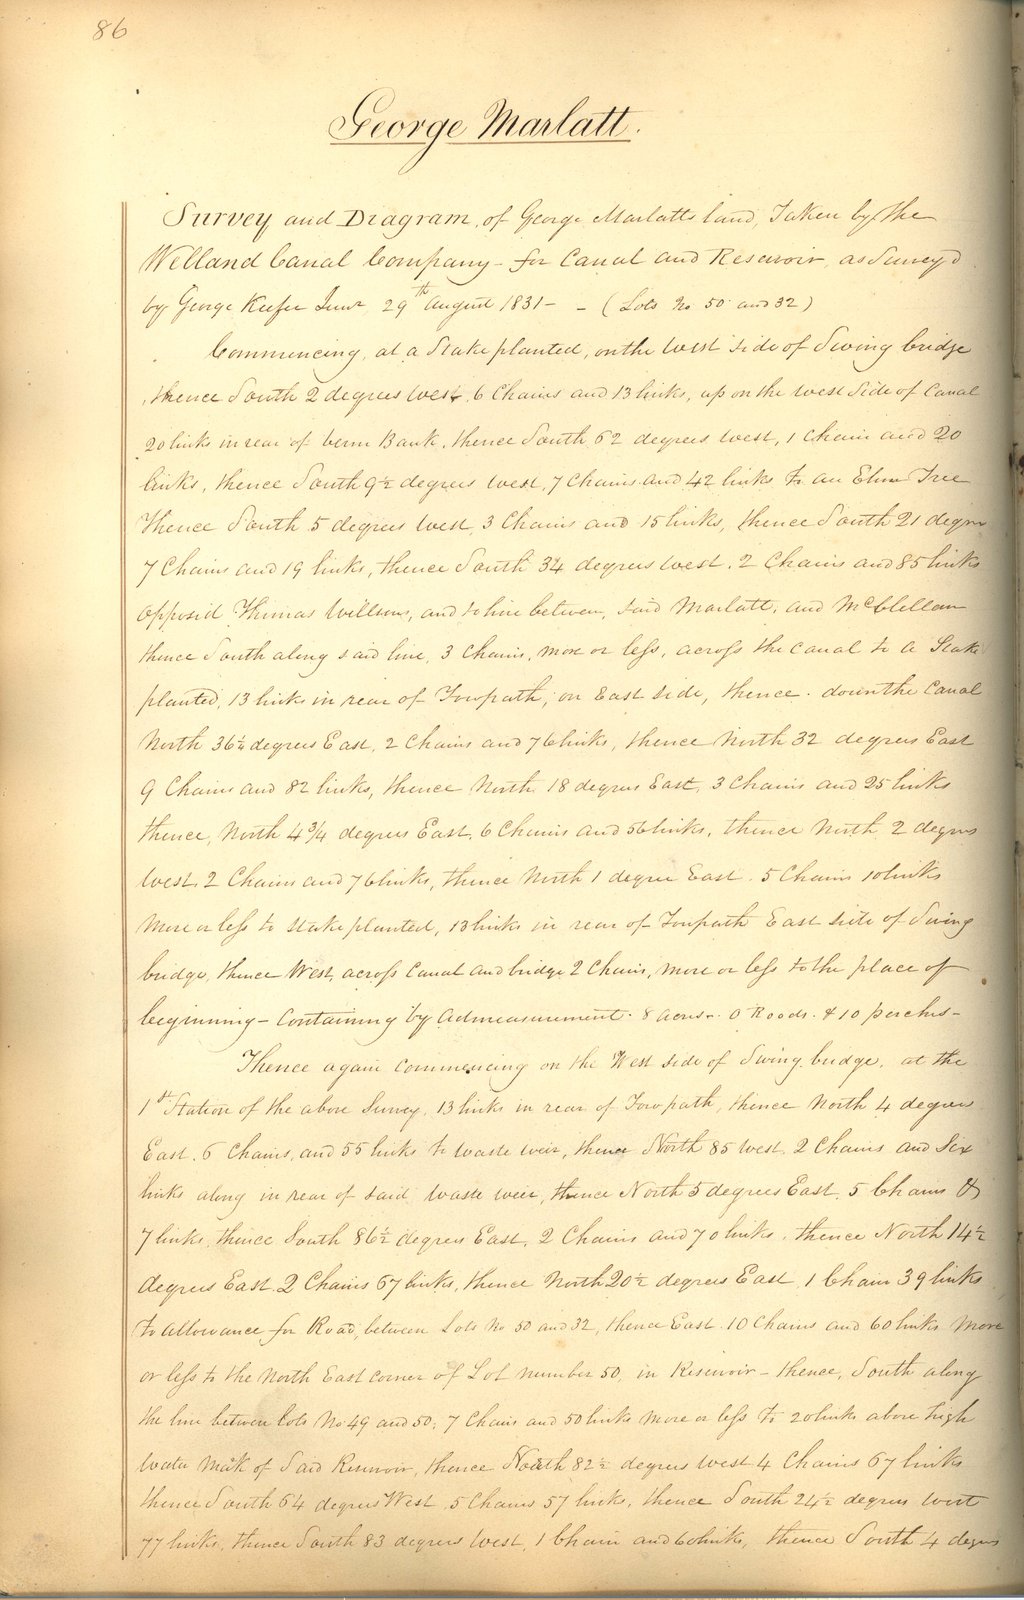 86
George Marlatt.
Survey and Diagram, of George Marlatts land, Taken by the
Welland Canal Company - for Canal and Reservoir, as Survey'd
by George Keefer Junr 29th august 1831 - - (Lots No 50 and 32)
Commencing, at a Stake planted, on the West side of Swing bridge
thence South 2 degrees west, 6 Chains and 13 links, up on the west Side of Canal
20 links in rear of berm Bank, thence South 62 degrees west, 1 chain and 20
links, thence South 9½ degrees west, 7 Chains and 42 links to an Elm Tree
Thence South 5 degrees West, 3 Chains and 15 links, thence South 21 degrees
7 Chains and 19 links, thence South 34 degrees west, 2 Chains and 85 links
opposid Thimas Willsons, and to line between, said Marlatt, and McClellan
thence South along said line, 3 Chains, more or less, across the canal to a Stake
planted, 13 links in rear of Towpath, on East side, thence down the Canal
North 36½ degrees East, 2 Chains and 76 links, thence North 32 degrees East
9 Chains and 82 links, thence North 18 degrees East, 3 Chains and 25 links
thence, North 4 3/4 degrees East, 6 Chains and 56 links, thence North 2 degrees
West, 2 Chains and 76 links, thence North 1 degree East. 5 Chains 10 links
More or less to stake planted, 13 links in rear of Towpath East side of Swing
bridge, thence West, across Canal and bridge 2 Chains, more or less to the place of
beginning - Containing by admeasurement. 8 acres. 0 Roods. & 10 perches -
Thence again commencing on the West side of Swing bridge, at the
1st Station of the above Survey, 13 links in rear of Tow path, thence North 4 degrees
East, 6 Chains, and 55 links to waste weir, thence North 85 west, 2 Chains and Six
links along in rear of said waste weir, thence North 5 degrees East, 5 Chains &
7 links, thence South 86½ degrees East, 2 Chains and 70 links, thence North 14½
degrees East 2 Chains 67 links, thence North 20½ degrees East, 1 Chain 39 links
to allowance for Road, between Lots No 50 and 32, thence East 10 Chains and 60 links More
or less to the North East corner of Lot number 50, in Reservoir - thence, South along
the line between Lots No 49 and 50, 7 Chains and 50 links more or less to 20 links above high
water mark of Said Reservoir, thence North 82½ degrees west 4 Chains 67 links
thence South 64 degrees West, 5 Chains 57 links, thence South 24½ degrees west
77 links, thence South 83 degrees west, 1 Chain and 60 links, thence South 4 degrees